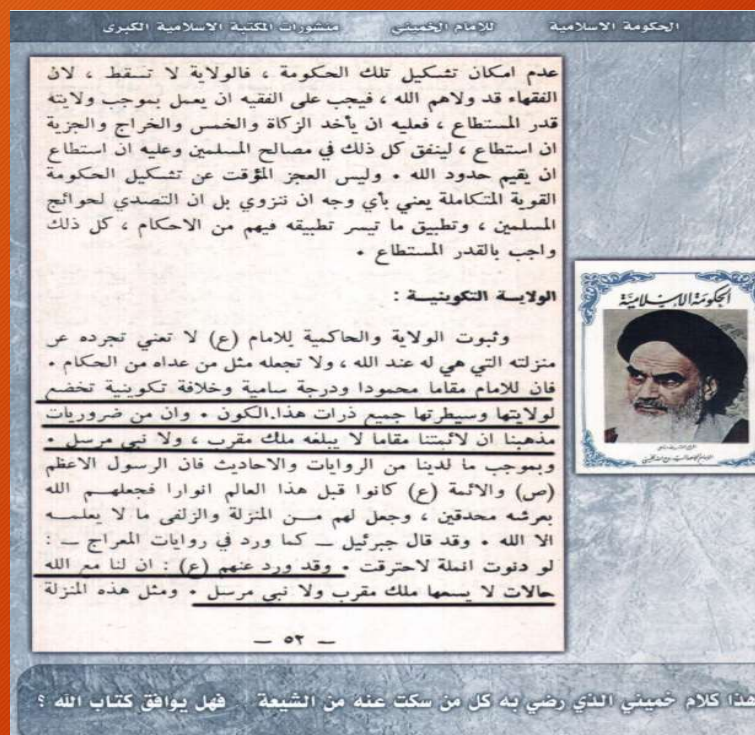 الحكومة الاسلامية للامام الخميني منشورات المكتبة الاسلامية الكبرى
عدم امكان تشكيل تلك الحكومة ، فالولاية لا تسقط ، لان
الفقهاء قد ولاهم الله ، فيجب على الفقيه ان يعمل بموجب ولايته
قدر المستطاع ، فعليه ان يأخذ الزكاة والخمس والخراج والجزية
ان استطاع ، لينفق كل ذلك في مصالح المسلمين وعليه ان استطاع
ان يقيم حدود الله • وليس العجز المؤقت عن تشكيل الحكومة
القوية المتكاملة يعني بأي وجه ان ننزوي بل ان التصدي لحوائج
المسلمين ، وتطبيق ما تيسر تطبيقه فيهم من الاحكام ، كل ذلك
واجب بالقدر المستطاع •
الولاية التكوينية :
وثبوت الولاية والحاكمية للامام (ع) لا تعني تجرده عن
منزلته التي هي له عند الله ، ولا تجعله مثل من عداه من الحكام •
فان للامام مقاما محمودا ودرجة سامية وخلافة تكوينية تخضع
لولايتها وسيطرتها جميع ذرات هذا الكون • وان من ضروريات
مذهبنا ان لائمتنا مقاما لا يبلغه ملك مقرب ، ولا نبي مرسل •
وبموجب ما لدينا من الروايات والاحاديث فان الرسول الاعظم
(ص) والائمة (ع) كانوا قبل هذا العالم انوارا فجعلهم الله
بعرشه محدقين ، وجعل لهم من المنزلة والزلفى ما لا يعلمه
الا الله • وقد قال جبرئيل — كما ورد في روايات المعراج — :
لو دنوت انملة لاحترقت • وقد ورد عنهم (ع) : ان لنا مع الله
حالات لا يسعها ملك مقرب ولا نبي مرسل • ومثل هذه المنزلة
— ٥٢ —
الحكومة الاسلامية
هذا كلام خميني الذي رضي به كل من سكت عنه من الشيعة فهل يوافق كتاب الله ؟